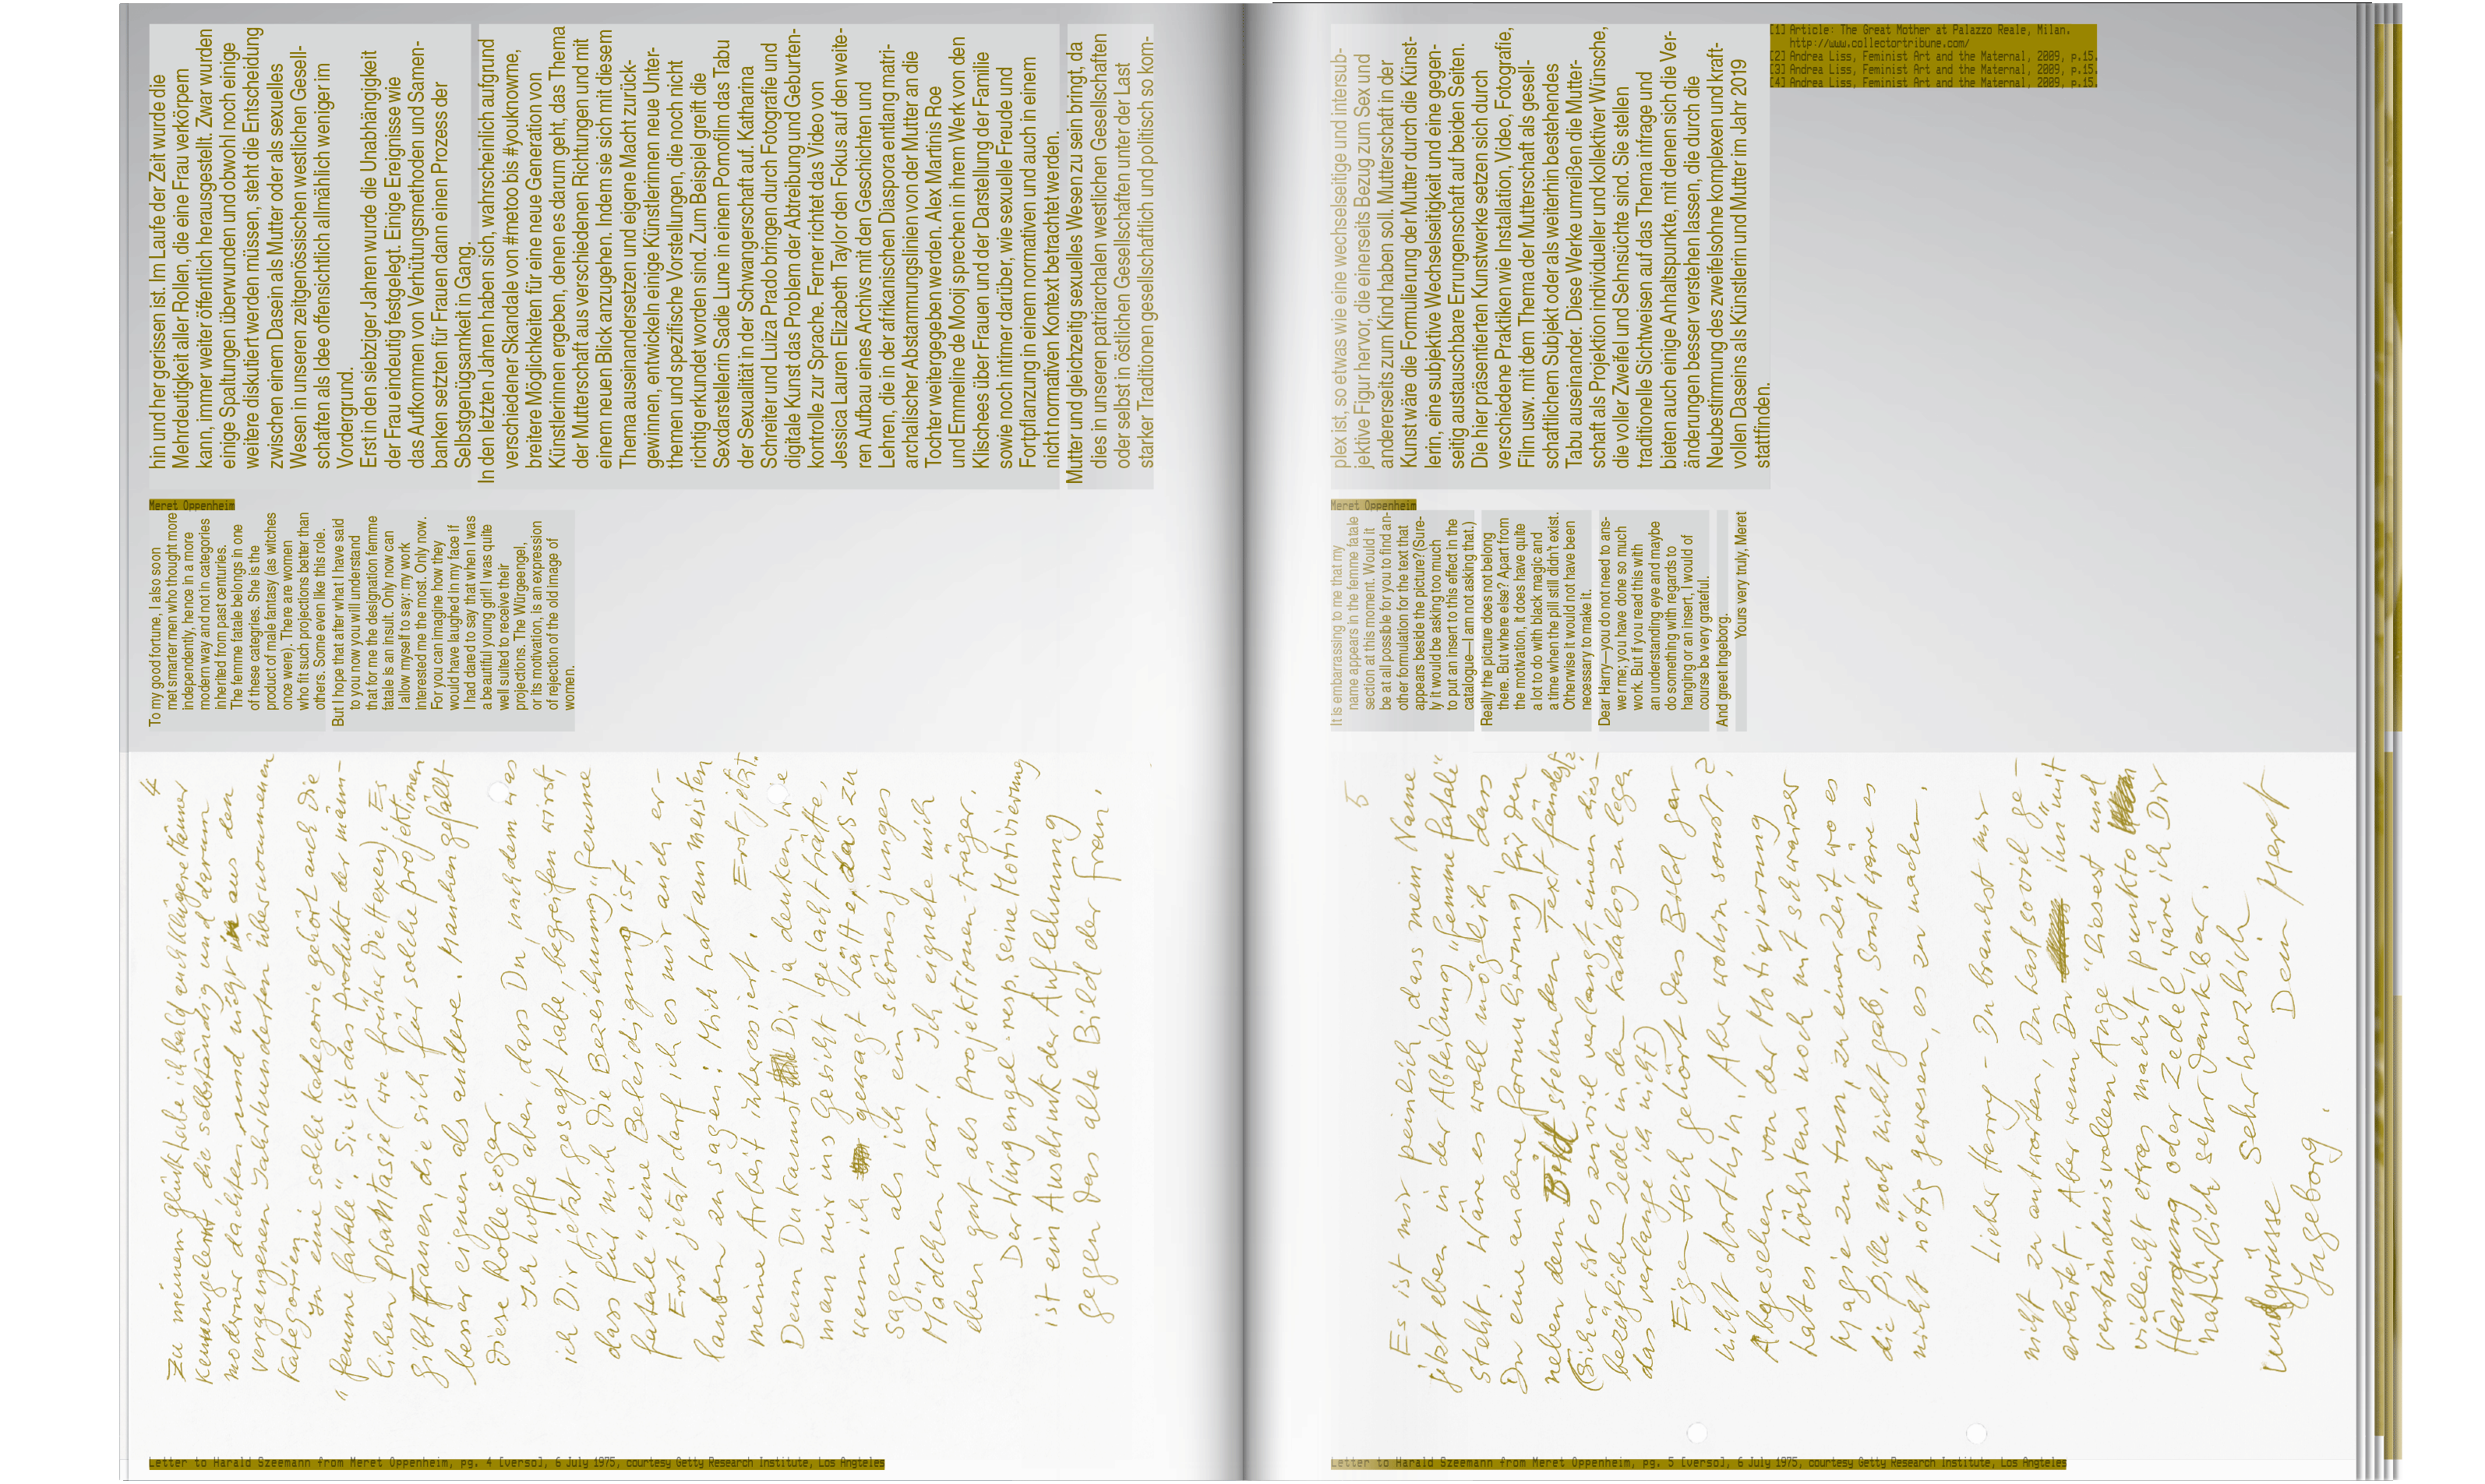 hin und her gerissen ist. Im Laufe der Zeit wurde die
Mehrdeutigkeit aller Rollen, die eine Frau verkörpern
kann, immer weiter öffentlich herausgestellt. Zwar wurden
einige Spaltungen überwunden und obwohl noch einige
weitere diskutiert werden müssen, steht die Entscheidung
zwischen einem Dasein als Mutter oder als sexuelles
Wesen in unseren zeitgenössischen westlichen Gesell-
schaften als Idee offensichtlich allmählich weniger im
Vordergrund.
Erst in den siebziger Jahren wurde die Unabhängigkeit
der Frau eindeutig festgelegt. Einige Ereignisse wie
das Aufkommen von Verhütungsmethoden und Samen-
banken setzten für Frauen dann einen Prozess der
Selbstgenügsamkeit in Gang.
In den letzten Jahren haben sich, wahrscheinlich aufgrund
verschiedener Skandale von #metoo bis #youknowme,
breitere Möglichkeiten für eine neue Generation von
Künstlerinnen ergeben, denen es darum geht, das Thema
der Mutterschaft aus verschiedenen Richtungen und mit
einem neuen Blick anzugehen. Indem sie sich mit diesem
Thema auseinandersetzen und eigene Macht zurück-
gewinnen, entwickeln einige Künstlerinnen neue Unter-
themen und spezifische Vorstellungen, die noch nicht
richtig erkundet worden sind. Zum Beispiel greift die
Sexdarstellerin Sadie Lune in einem Pornofilm das Tabu
der Sexualität in der Schwangerschaft auf. Katharina
Schreiter und Luiza Prado bringen durch Fotografie und
digitale Kunst das Problem der Abtreibung und Geburten-
kontrolle zur Sprache. Ferner richtet das Video von
Jessica Lauren Elizabeth Taylor den Fokus auf den weite-
ren Aufbau eines Archivs mit den Geschichten und
Lehren, die in der afrikanischen Diaspora entlang matri-
archalischer Abstammungslinien von der Mutter an die
Tochter weitergegeben werden. Alex Martinis Roe
und Emmeline de Mooij sprechen in ihrem Werk von den
Klischees über Frauen und der Darstellung der Familie
sowie noch intimer darüber, wie sexuelle Freude und
Fortpflanzung in einem normativen und auch in einem
nicht normativen Kontext betrachtet werden.
Mutter und gleichzeitig sexuelles Wesen zu sein bringt, da
dies in unseren patriarchalen westlichen Gesellschaften
oder selbst in östlichen Gesellschaften unter der Last
starker Traditionen gesellschaftlich und politisch so kom-
Meret Oppenheim
To my good fortune, I also soon
met smarter men who thought more
independently, hence in a more
modern way and not in categories
inherited from past centuries.
The femme fatale belongs in one
of these categries. She is the
product of male fantasy (as witches
once were). There are women
who fit such projections better than
others. Some even like this role.
But I hope that after what I have said
to you now you will understand
that for me the designation femme
fatale is an insult. Only now can
I allow myself to say: my work
interested me the most. Only now.
For you can imagine how they
would have laughed in my face if
I had dared to say that when I was
a beautiful young girl! I was quite
well suited to receive their
projections. The Würgeengel,
or its motivation, is an expression
of rejection of the old image of
women.
4
Zu meinem Glück habe ich bald auch klügere Männer
kennengelernt, die selbständig und darum
moderner dachten und nicht in aus den
vergangenen Jahrhunderten übernommenen
Kategorien.
In eine solche Kategorie gehört auch die
"femme fatale". Sie ist das Produkt der männ-
lichen Phantasie (wie früher die Hexen). Es
gibt Frauen, die sich für solche Projektionen
besser eignen als andere. Manchen gefällt
diese Rolle sogar.
Ich hoffe aber, dass Du, nachdem was
ich Dir jetzt gesagt habe, begreifen wirst,
dass für mich die Bezeichnung "femme
fatale" eine Beleidigung ist.
Erst jetzt darf ich es mir auch er-
lauben zu sagen: Mich hat am meisten
meine Arbeit interessiert. Erst jetzt.
Denn Du kannst Dir ja denken, wie
man mir ins Gesicht gelacht hätte,
wenn ich gewagt hätte, das zu
sagen als ich ein schönes junges
Mädchen war! Ich eignete mich
eben gut als Projektionen-träger.
Der Würgengel resp. seine Motivierung
ist ein Ausdruck der Auflehnung
gegen das alte Bild der Frau.
Letter to Harald Szeemann from Meret Oppenheim, pg. 4 [verso], 6 July 1975, courtesy Getty Research Institute, Los Angteles
plex ist, so etwas wie eine wechselseitige und intersub-
jektive Figur hervor, die einerseits Bezug zum Sex und
andererseits zum Kind haben soll. Mutterschaft in der
Kunst wäre die Formulierung der Mutter durch die Künst-
lerin, eine subjektive Wechselseitigkeit und eine gegen-
seitig austauschbare Errungenschaft auf beiden Seiten.
Die hier präsentierten Kunstwerke setzen sich durch
verschiedene Praktiken wie Installation, Video, Fotografie,
Film usw. mit dem Thema der Mutterschaft als gesell-
schaftlichem Subjekt oder als weiterhin bestehendes
Tabu auseinander. Diese Werke umreißen die Mutter-
schaft als Projektion individueller und kollektiver Wünsche,
die voller Zweifel und Sehnsüchte sind. Sie stellen
traditionelle Sichtweisen auf das Thema infrage und
bieten auch einige Anhaltspunkte, mit denen sich die Ver-
änderungen besser verstehen lassen, die durch die
Neubestimmung des zweifelsohne komplexen und kraft-
vollen Daseins als Künstlerin und Mutter im Jahr 2019
stattfinden.
[1] Article: The Great Mother at Palazzo Reale, Milan.
http://www.collectortribune.com/
[2] Andrea Liss, Feminist Art and the Maternal, 2009, p.15.
[3] Andrea Liss, Feminist Art and the Maternal, 2009, p.15.
[4] Andrea Liss, Feminist Art and the Maternal, 2009, p.15.
Meret Oppenheim
It is embarrassing to me that my
name appears in the femme fatale
section at this moment. Would it
be at all possible for you to find an-
other formulation for the text that
appears beside the picture? (Sure-
ly it would be asking too much
to put an insert to this effect in the
catalogue—I am not asking that.)
Really the picture does not belong
there. But where else? Apart from
the motivation, it does have quite
a lot to do with black magic and
a time when the pill still didn't exist.
Otherwise it would not have been
necessary to make it.
Dear Harry—you do not need to ans-
wer me; you have done so much
work. But if you read this with
an understanding eye and maybe
do something with regards to
hanging or an insert, I would of
course be very grateful.
And greet Ingeborg.
Yours very truly, Meret
5
Es ist mir peinlich, dass mein Name
jetzt eben in der Abteilung "femme fatale"
steht. Wäre es wohl möglich, dass
Du eine andere Formulierung für den
neben dem Bild stehenden Text fändest?
(Sicher ist es zu viel verlangt einen dies-
bezüglichen Zedel in den Katalog zu legen
das verlange ich nicht)
Eigentlich gehört das Bild gar
nicht dorthin. Aber wohin sonst?
Abgesehen von der Motivierung
hat es höchstens noch mit schwarzer
Magie zu tun, zu einer Zeit wo es
die Pille noch nicht gab. Sonst wäre es
nicht nötig gewesen, es zu machen.
Lieber Harry - Du brauchst mir
nicht zu antworten, Du hast soviel ge-
arbeitet. Aber wenn Du ihn mit
verständnisvollem Auge liesest und
vielleicht etwas machst, punkto
Hängung oder Zedel, wäre ich Dir
natürlich sehr dankbar.
Sehr herzlich
Dein Meret
und grüsse
Ingeborg.
Letter to Harald Szeemann from Meret Oppenheim, pg. 5 [verso], 6 July 1975, courtesy Getty Research Institute, Los Angteles